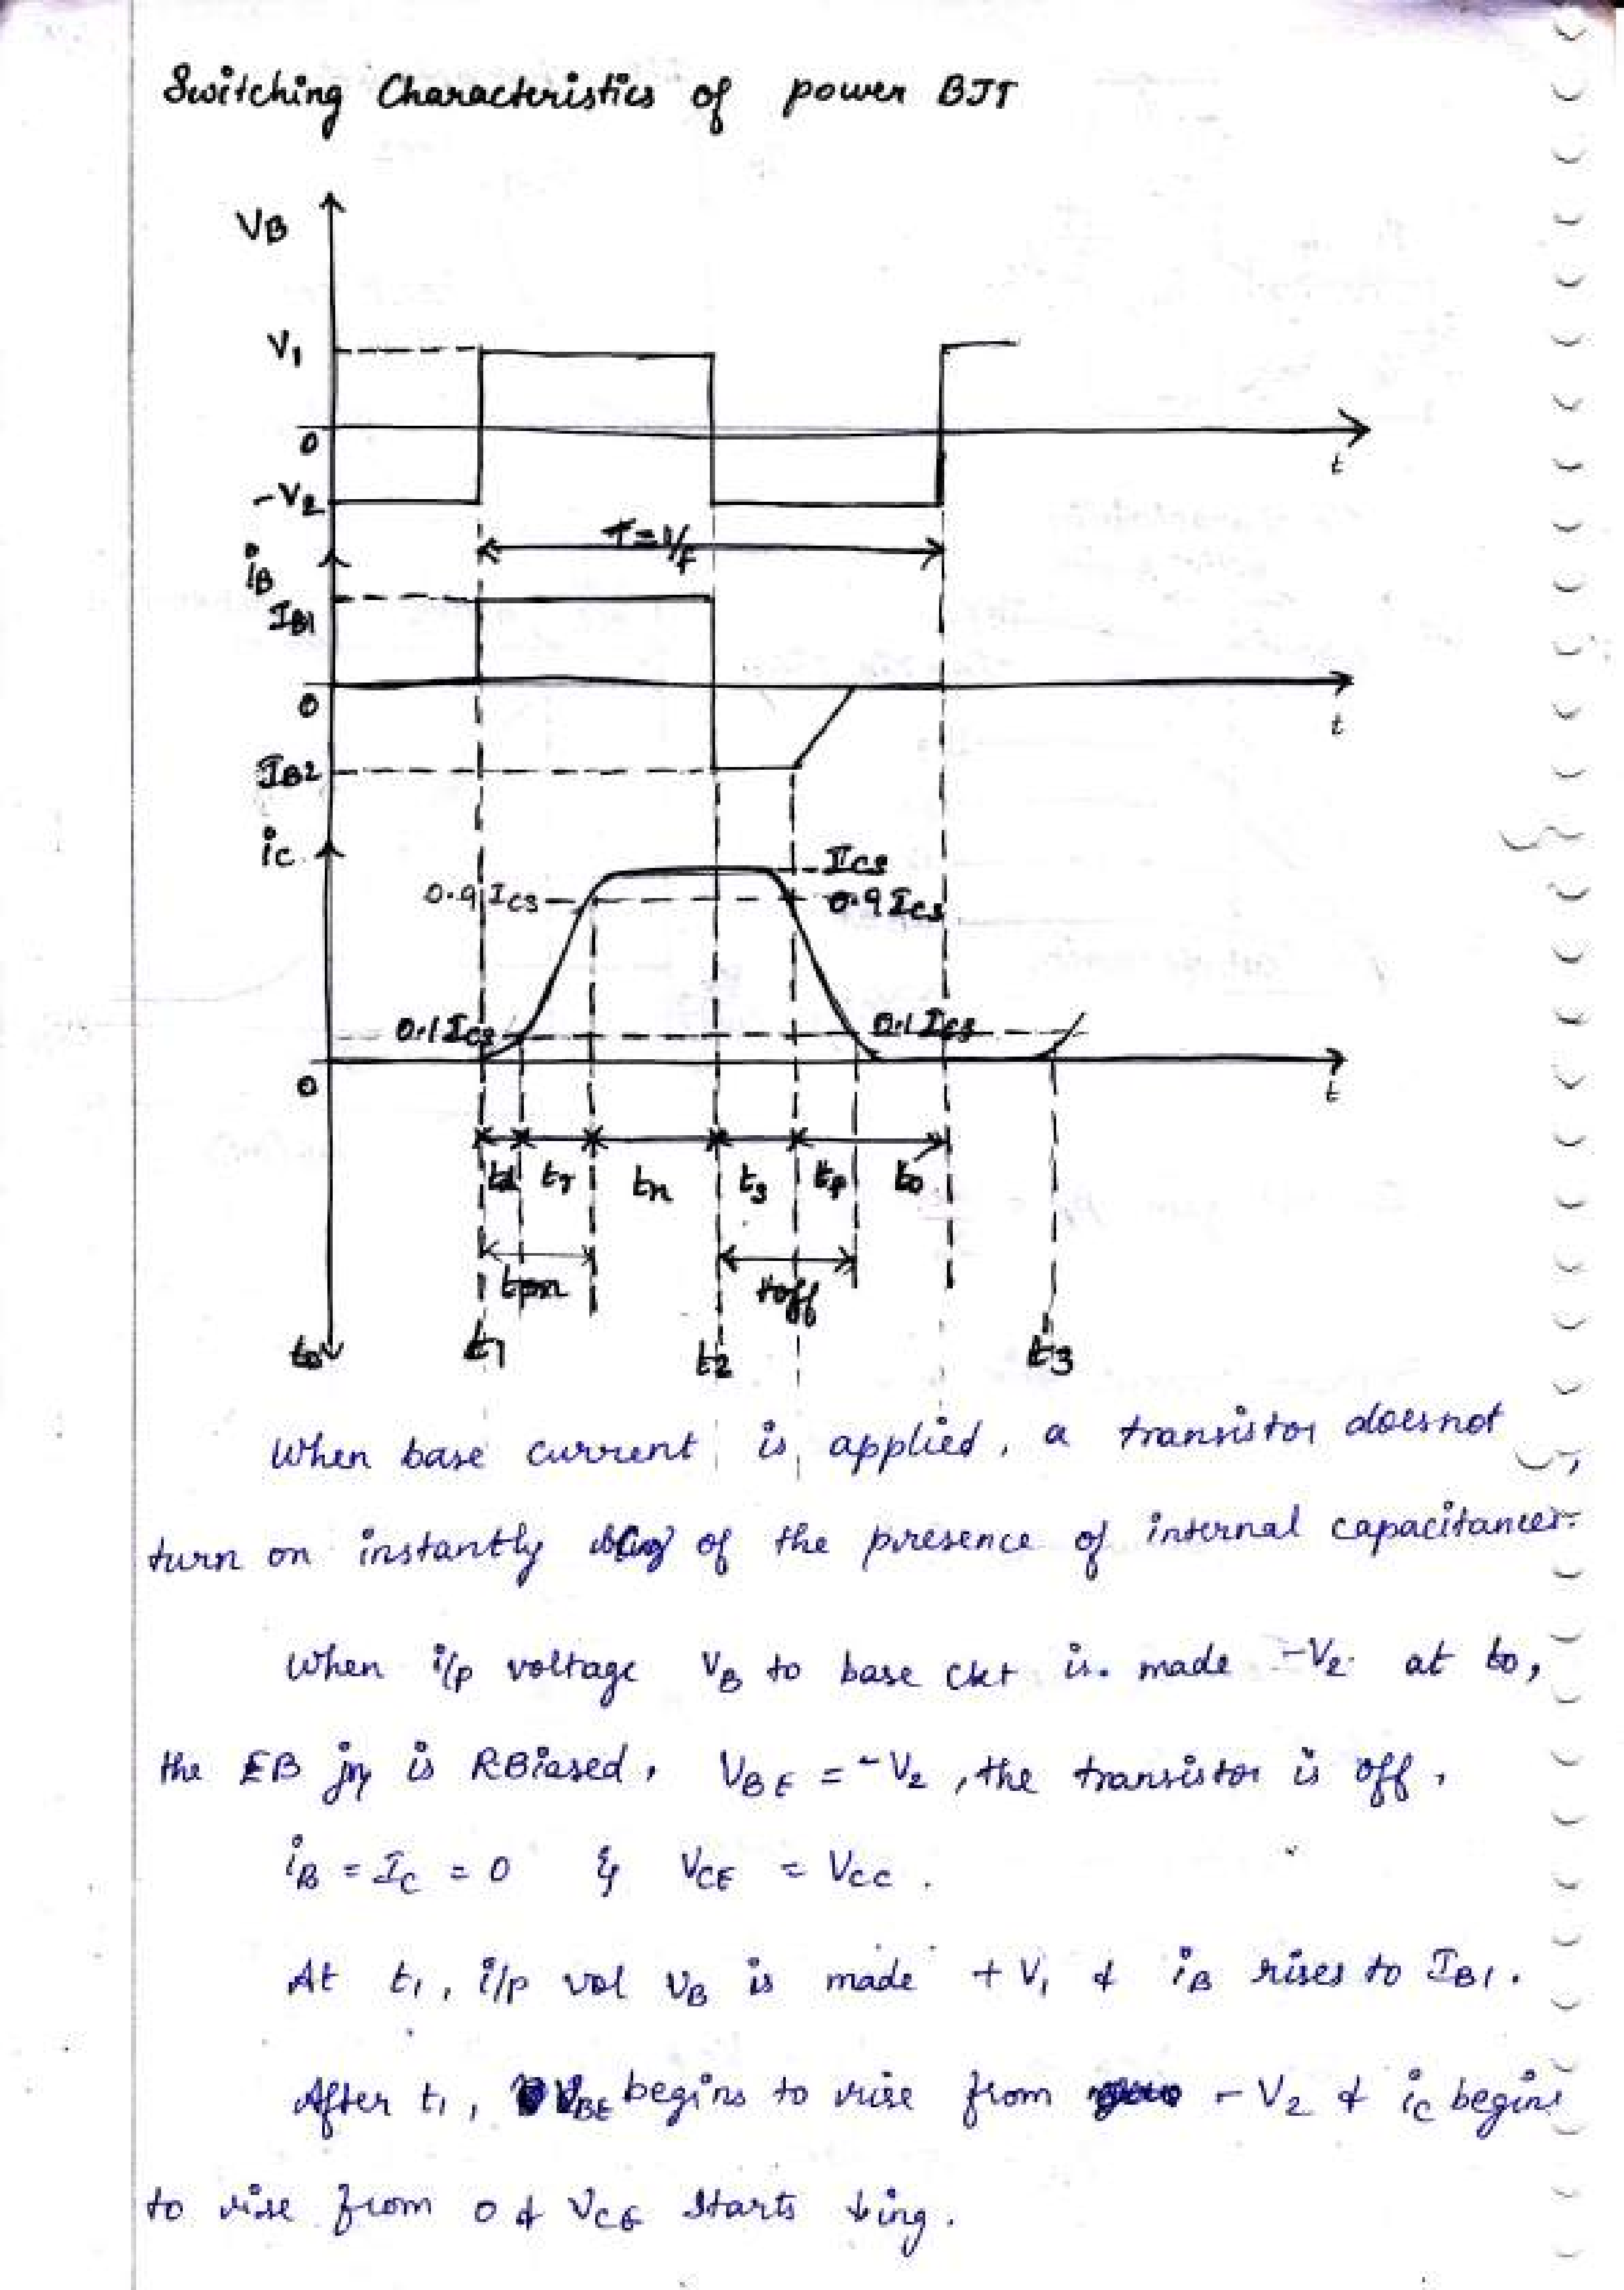 Switching Characteristics of power BJT
VB
V1
0
t
-V2
T=1/f
iB
IB1
0
t
IB2
ic
ICS
0.9 ICS
0.9 ICS
0.1 ICS
0.1 ICS
0
t
td tr tn ts tf to
ton toff
to t1 t2 t3
When base current is applied, a transistor doesnot
turn on instantly of the presence of internal capacitances.
When i/p voltage VB to base ckt is made -V2 at to,
the EB jn is RBiased. VBE = -V2, the transistor is off.
iB = IC = 0 & VCE = VCC.
At t1, i/p vol VB is made +V1 & iB rises to IB1.
After t1, VBE begins to rise from -V2 & ic begins
to rise from 0 & VCE starts ↓ing.